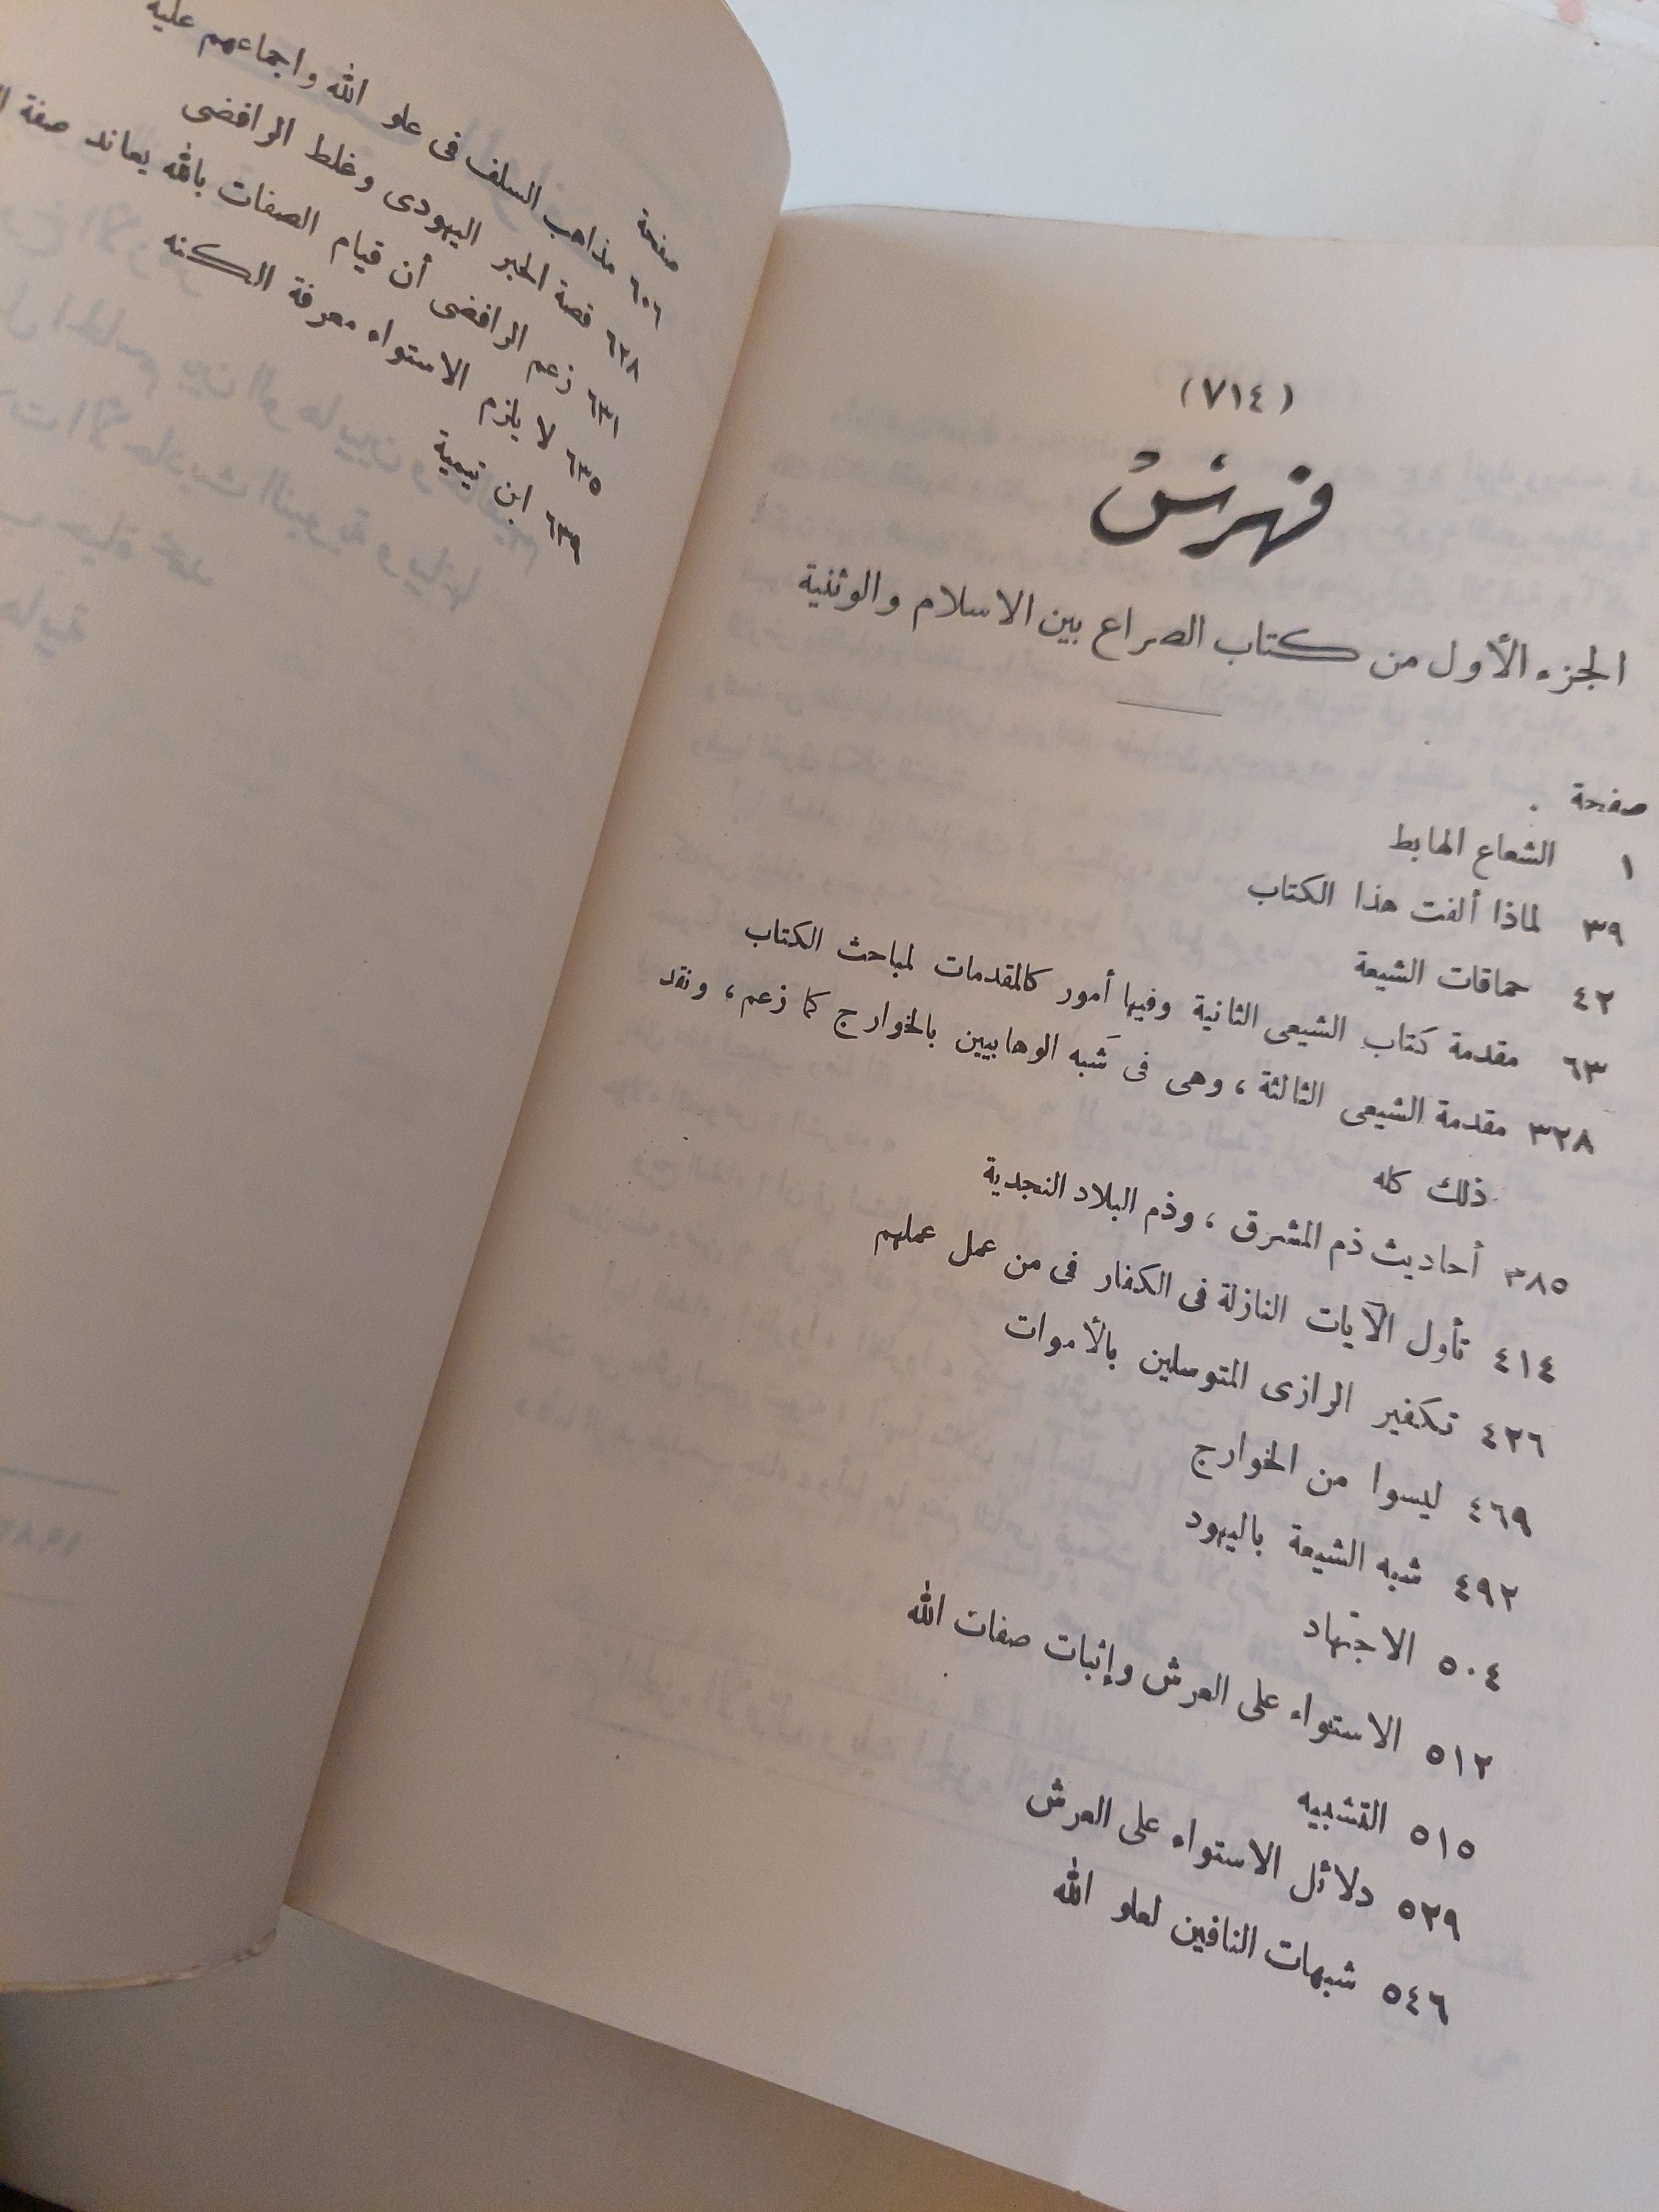 (٧١٤)
فهرس
الجزء الأول من كتاب الصراع بين الاسلام والوثنية
صفحة
١ الشعاع الهابط
٣٩ لماذا ألفت هذا الكتاب
٤٢ حماقات الشيعة
٦٣ مقدمة كتاب الشيعى الثانية وفيها أمور كالمقدمات لمباحث الكتاب
٣٢٨ مقدمة الشيعى الثالثة ، وهى فى شَبه الوهابيين بالخوارج كما زعم ، ونقد
ذلك كله
٣٨٥ أحاديث ذم المشرق ، وذم البلاد النجدية
٤١٤ تأول الآيات النازلة فى الكفار فى من عمل عملهم
٤٢٦ تكفير الرازى المتوسلين بالأموات
٤٦٩ ليسوا من الخوارج
٤٩٢ شبه الشيعة باليهود
٥٠٤ الاجتهاد
٥١٢ الاستواء على العرش وإثبات صفات الله
٥١٥ التشبيه
٥٢٩ دلائل الاستواء على العرش
٥٤٦ شبهات النافين لعلو الله
صفحة
٦٠٦ مذاهب السلف فى علو الله واجماعهم عليه
٦٢٨ قصة الحبر اليهودى وغلط الرافضى
٦٣١ زعم الرافضى أن قيام الصفات بالله يعاند صفة
٦٣٥ لا يلزم الاستواء معرفة الكنه
٦٣٩ ابن تيمية